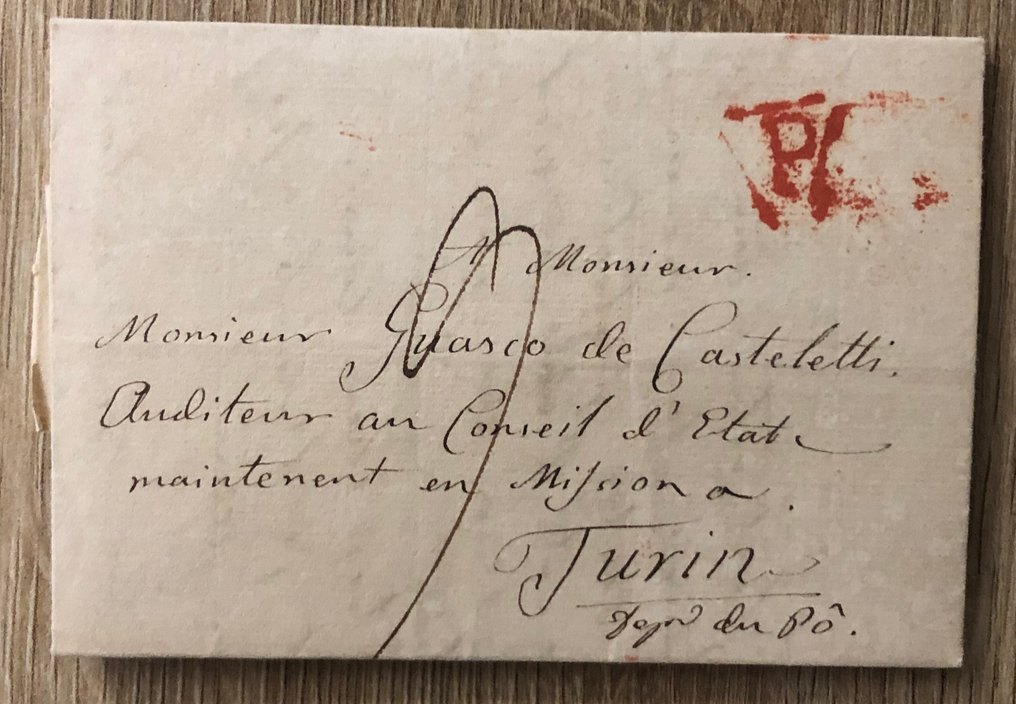 P
A Monsieur.
Monsieur Guasco de Casteletti.
Auditeur au Conseil d'Etat
maintenent en Mission a.
Turin
Dept du Pô.